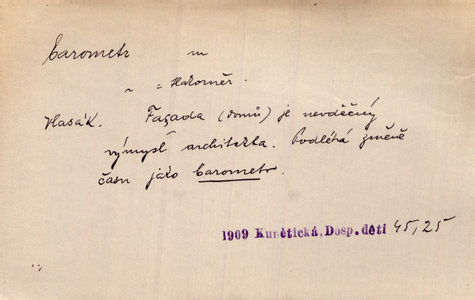 barometr m
~ = Hakoměr.
Hlasák. Façada (domů) je nevděčný
výmysl architekta. Podléhá změně
času jako barometr.
1909 Kunětická, Dosp. děti 45, 25